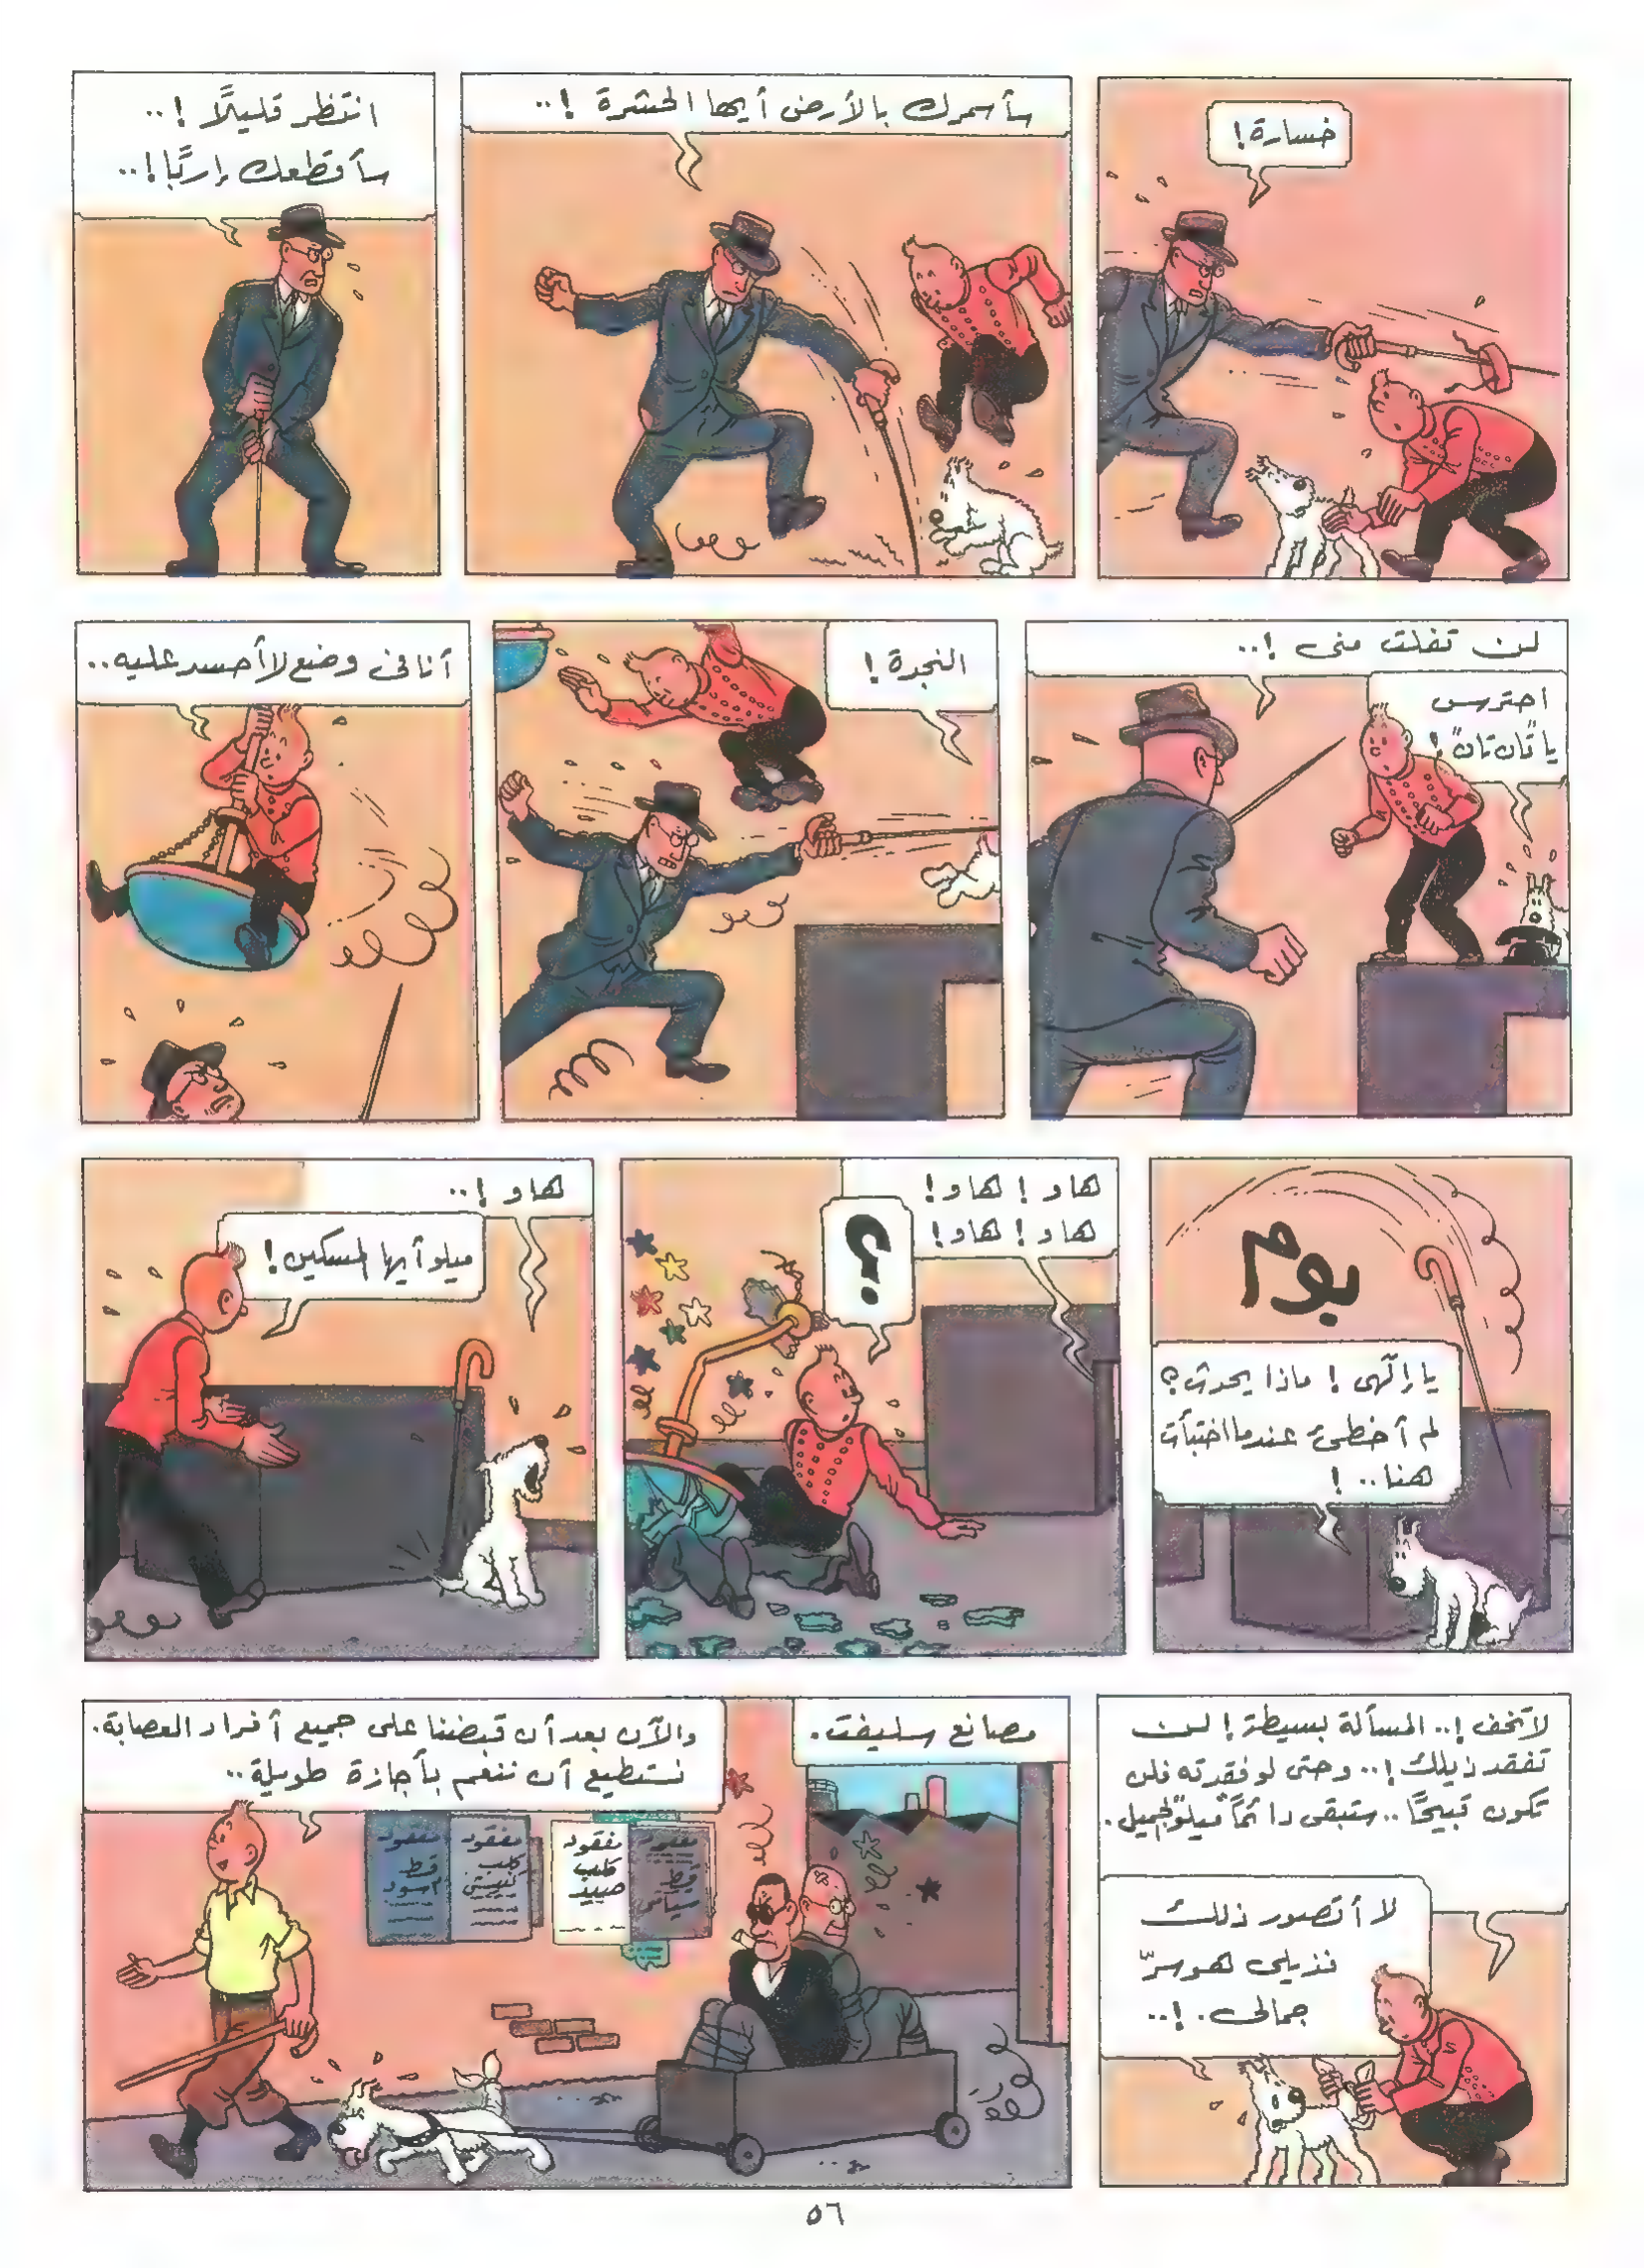 خسارة!
سأسمرك بالأرض أيها الحشرة !..
انتظر قليلًا !..
سأقطعك إربًا!..
لن تفلت منى !..
احترس
يا "تان تان"!
النجدة !
أنا فى وضع لا أحسد عليه..
بوم
يا إلهى ! ماذا يحدث؟
لم أخطئ عندما اختبأت
هنا.. !
هاو ! هاو !
هاو ! هاو !
؟
هاو !..
ميلو أيها المسكين !
لا تخف !.. المسألة بسيطة ! لن
تفقد ذيلك !.. وحتى لو فقدته فلن
تكون قبيحًا .. ستبقى دائمًا "ميلو" الجميل.
لا أتصور ذلك
فذيلى هو سرّ
جمالى. !..
مصانع سليفت.
والآن بعد أن قبضنا على جميع أفراد العصابة.
نستطيع أن ننعم بأجازة طويلة..
مفقود
قط
سيامى
مفقود
كلب
صيد
مفقود
كلب
مفقود
قط
أسود
٥٦